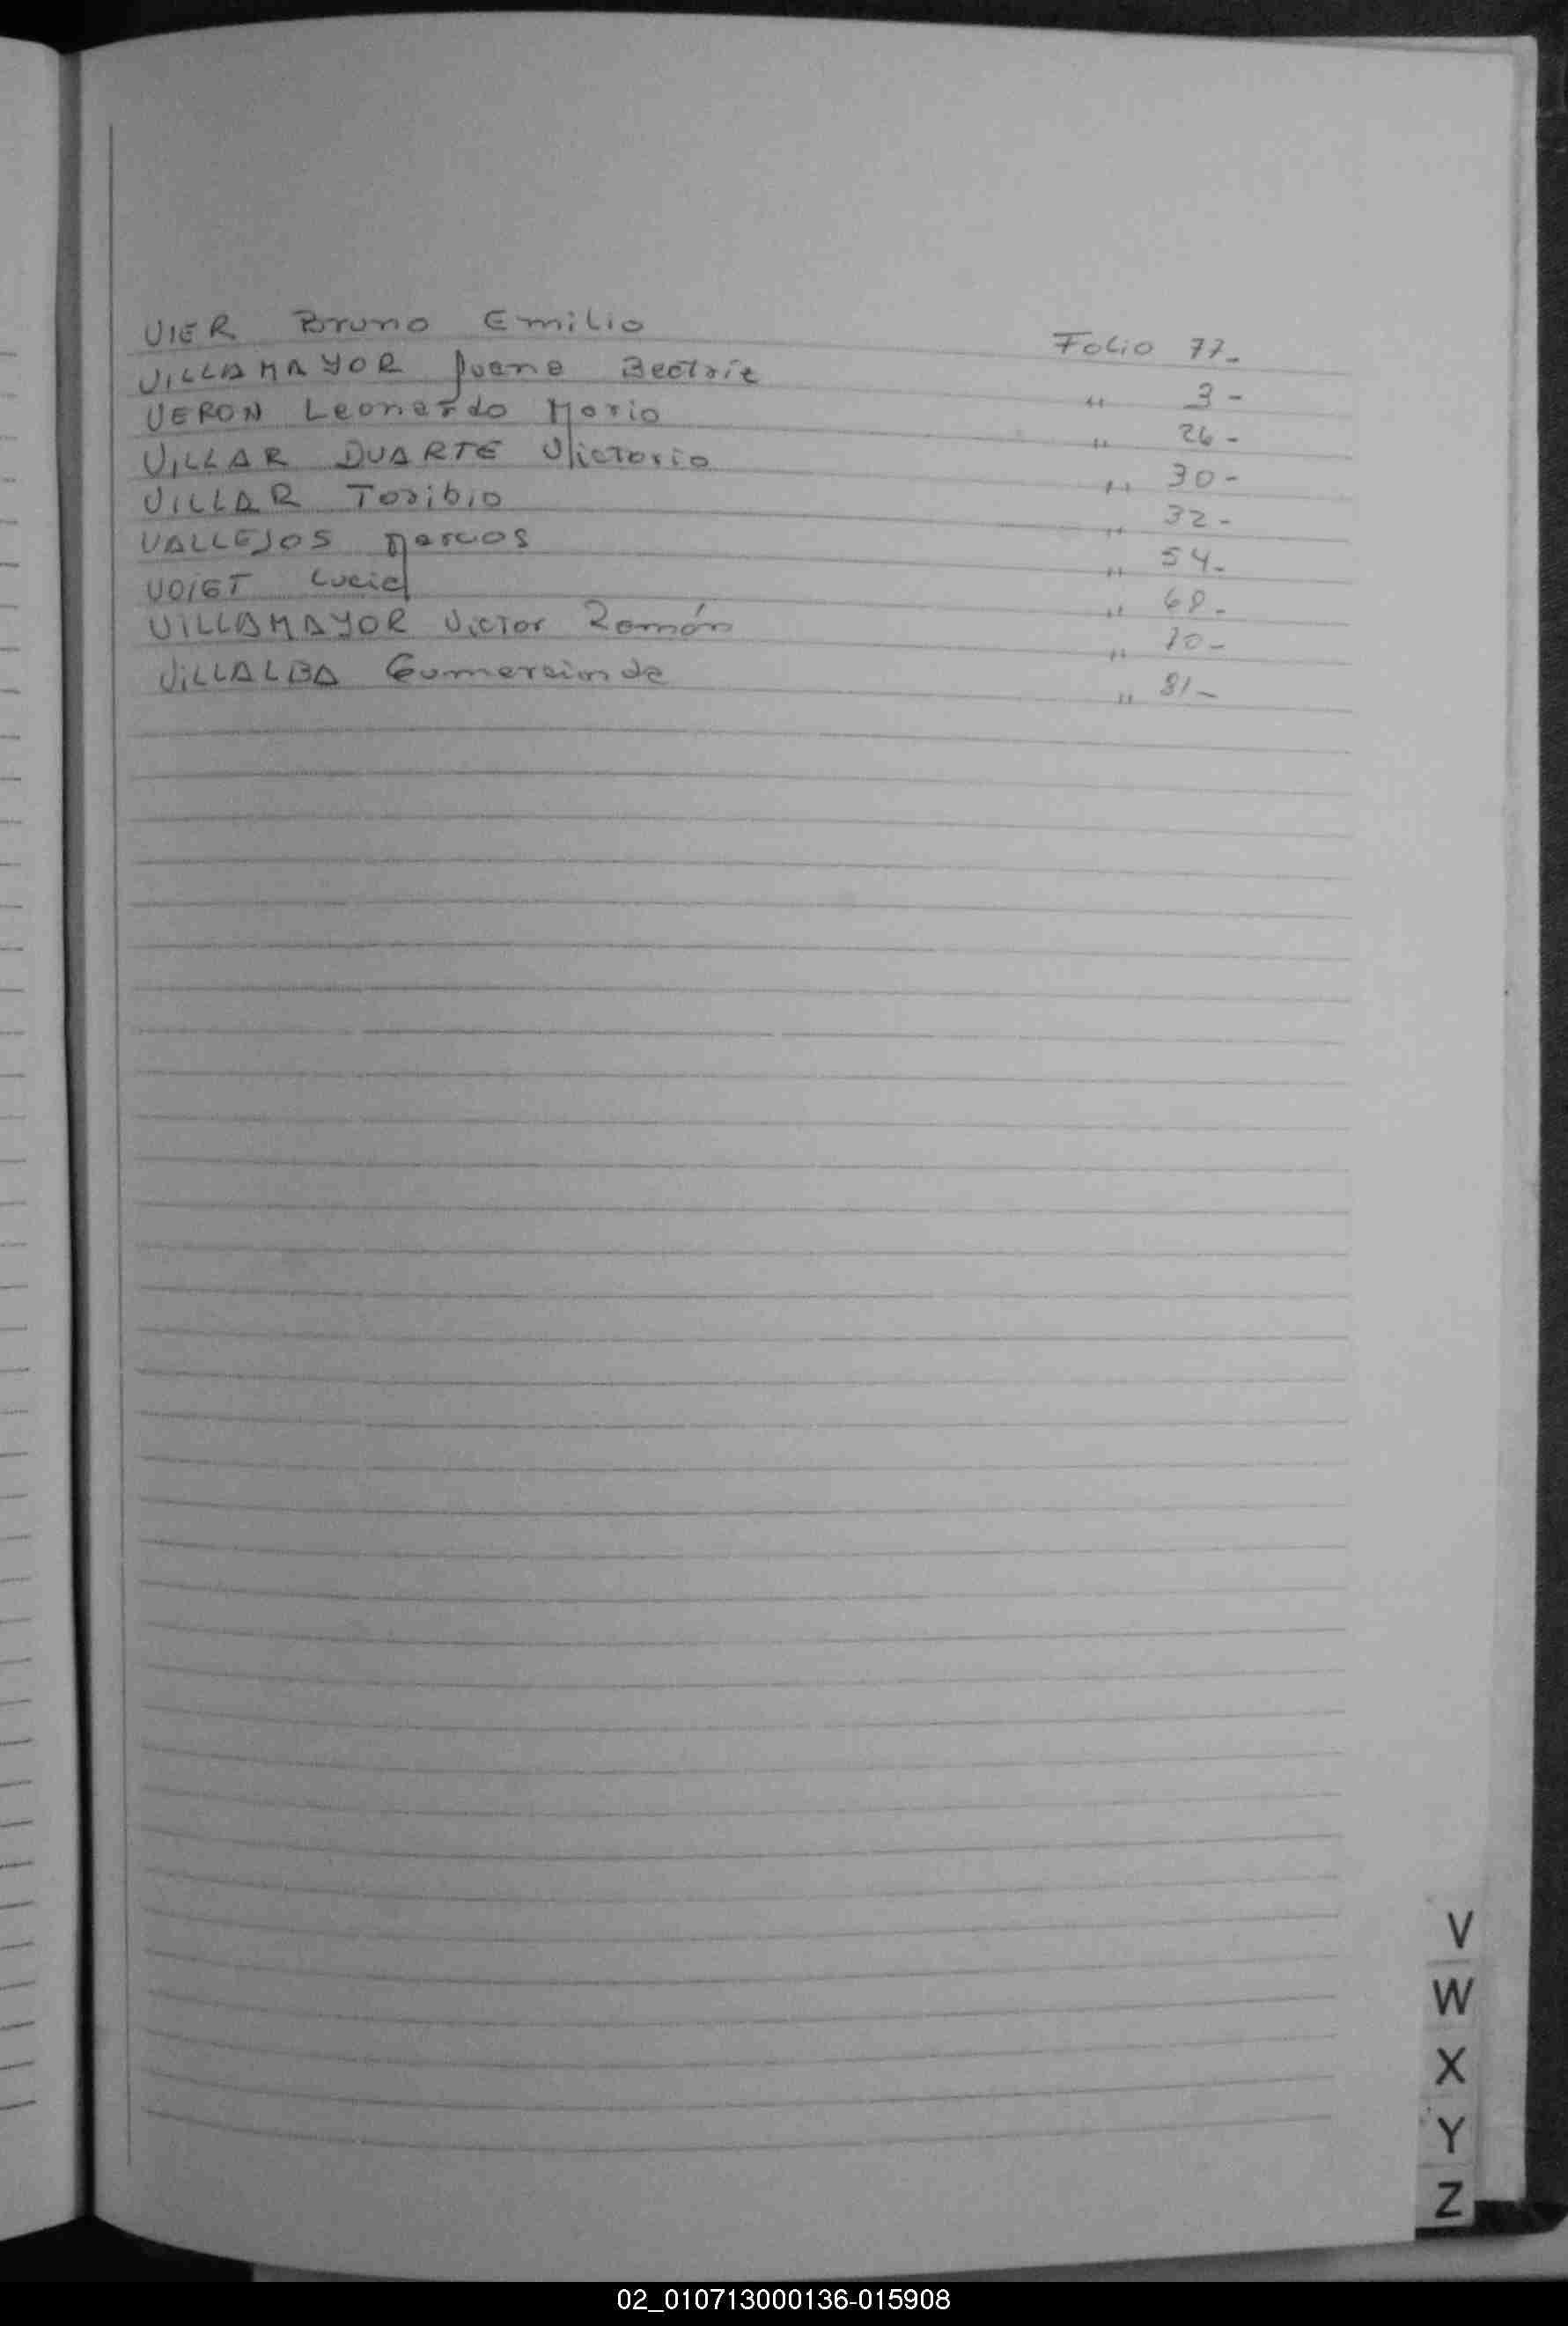 VIER Bruno Emilio Folio 77-
VILLAMAYOR Juana Beatriz " 3-
VERON Leonardo Mario " 26-
VILLAR DUARTE Victorio " 30-
VILLAR Toribio " 32-
VALLEJOS Marcos " 54-
VOIGT Lucia " 68-
VILLAMAYOR Victor Román " 70-
VILLALBA Gumercinda " 81-
V
W
X
Y
Z
02_010713000136-015908